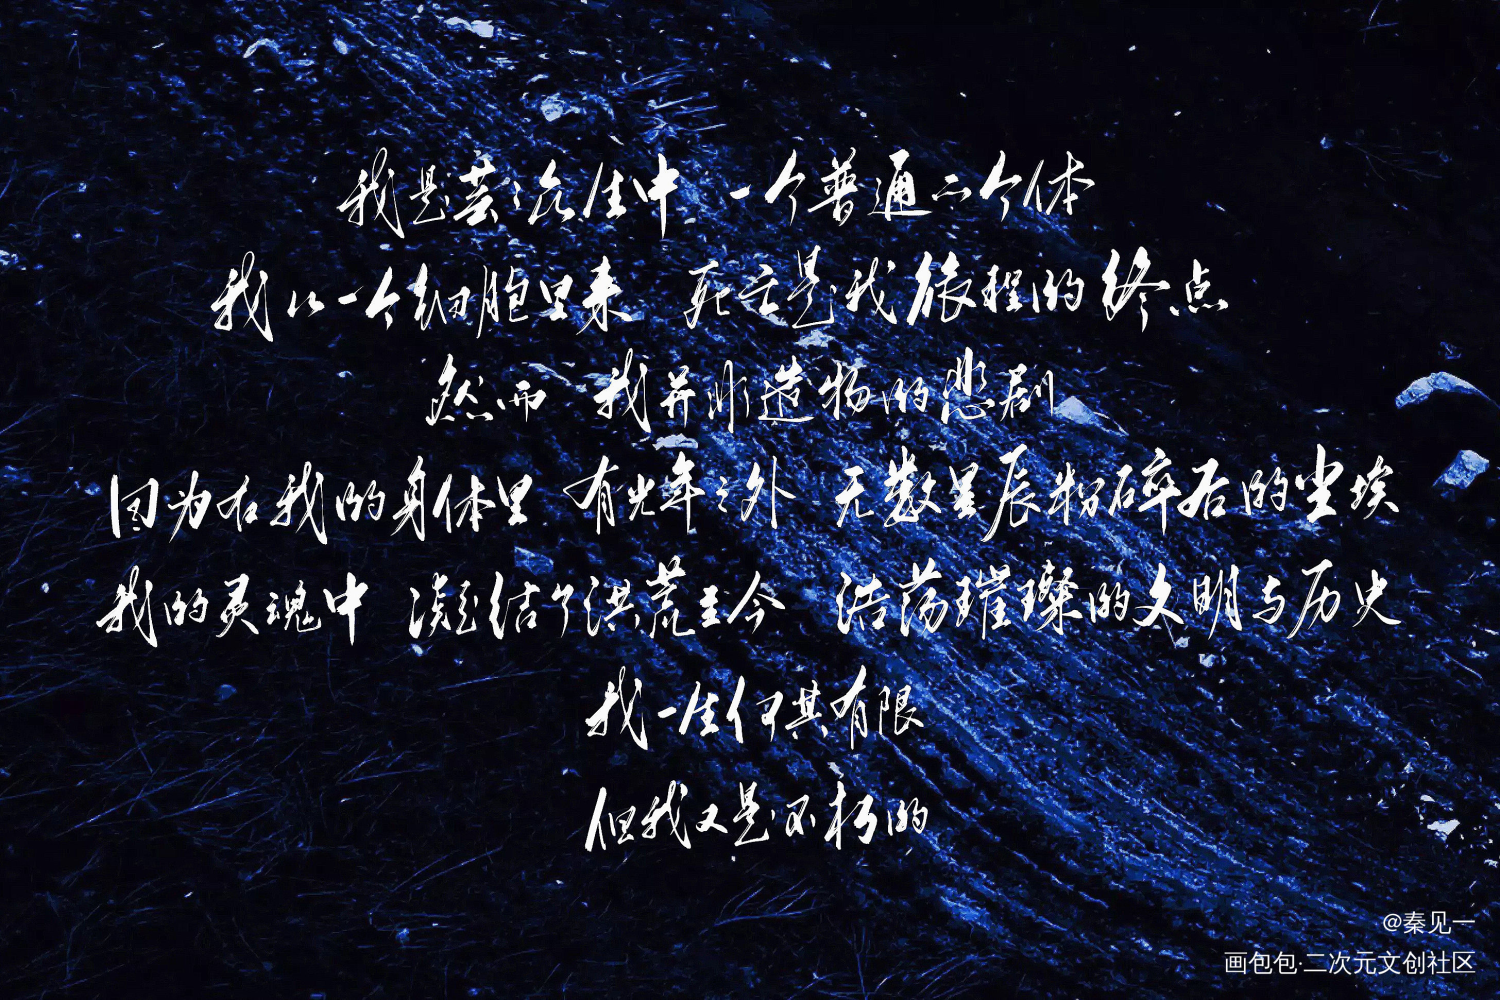 我是芸芸众生中 一个普通的个体
我从一个细胞里来 死亡是我旅程的终点
然而 我并非造物的悲剧
因为在我的身体里 有光年之外 无数星辰粉碎后的尘埃
我的灵魂中 凝结了洪荒至今 浩荡璀璨的文明与历史
我一生何其有限
但我又是不朽的
@秦见一
画包包·二次元文创社区